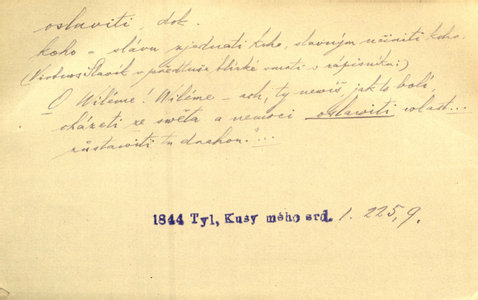 oslaviti, dok.
koho – slávu zjednati koho, slavným učiniti koho.
(Virtuos Slavík v předtuše blízké smrti v zápisníku:)
O Viléme! Viléme – ach, ty nevíš jak to bolí,
cházeti ze světa a nemoci oslawiti wlast...
zůstawiti tu drahou."...
1844 Tyl, Kusy mého srd. 1. 225, 9.